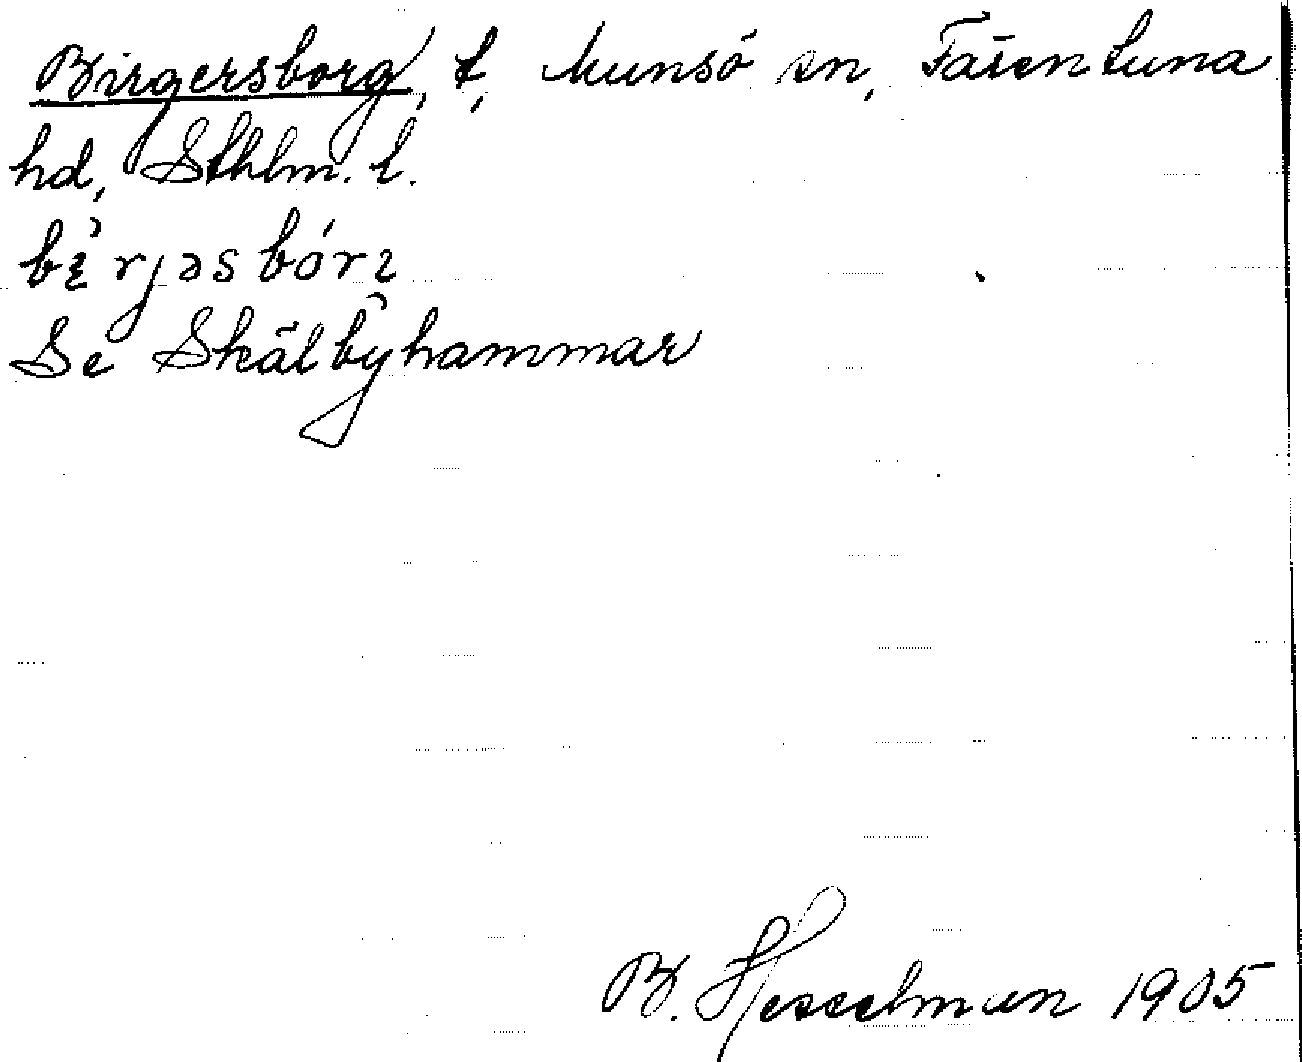 Birgersborg, t, Munsö sn, Färentuna
hd, Sthlm. l.
bịrjəsbórɪ
Se Skälbyhammar
B. Hesselman 1905